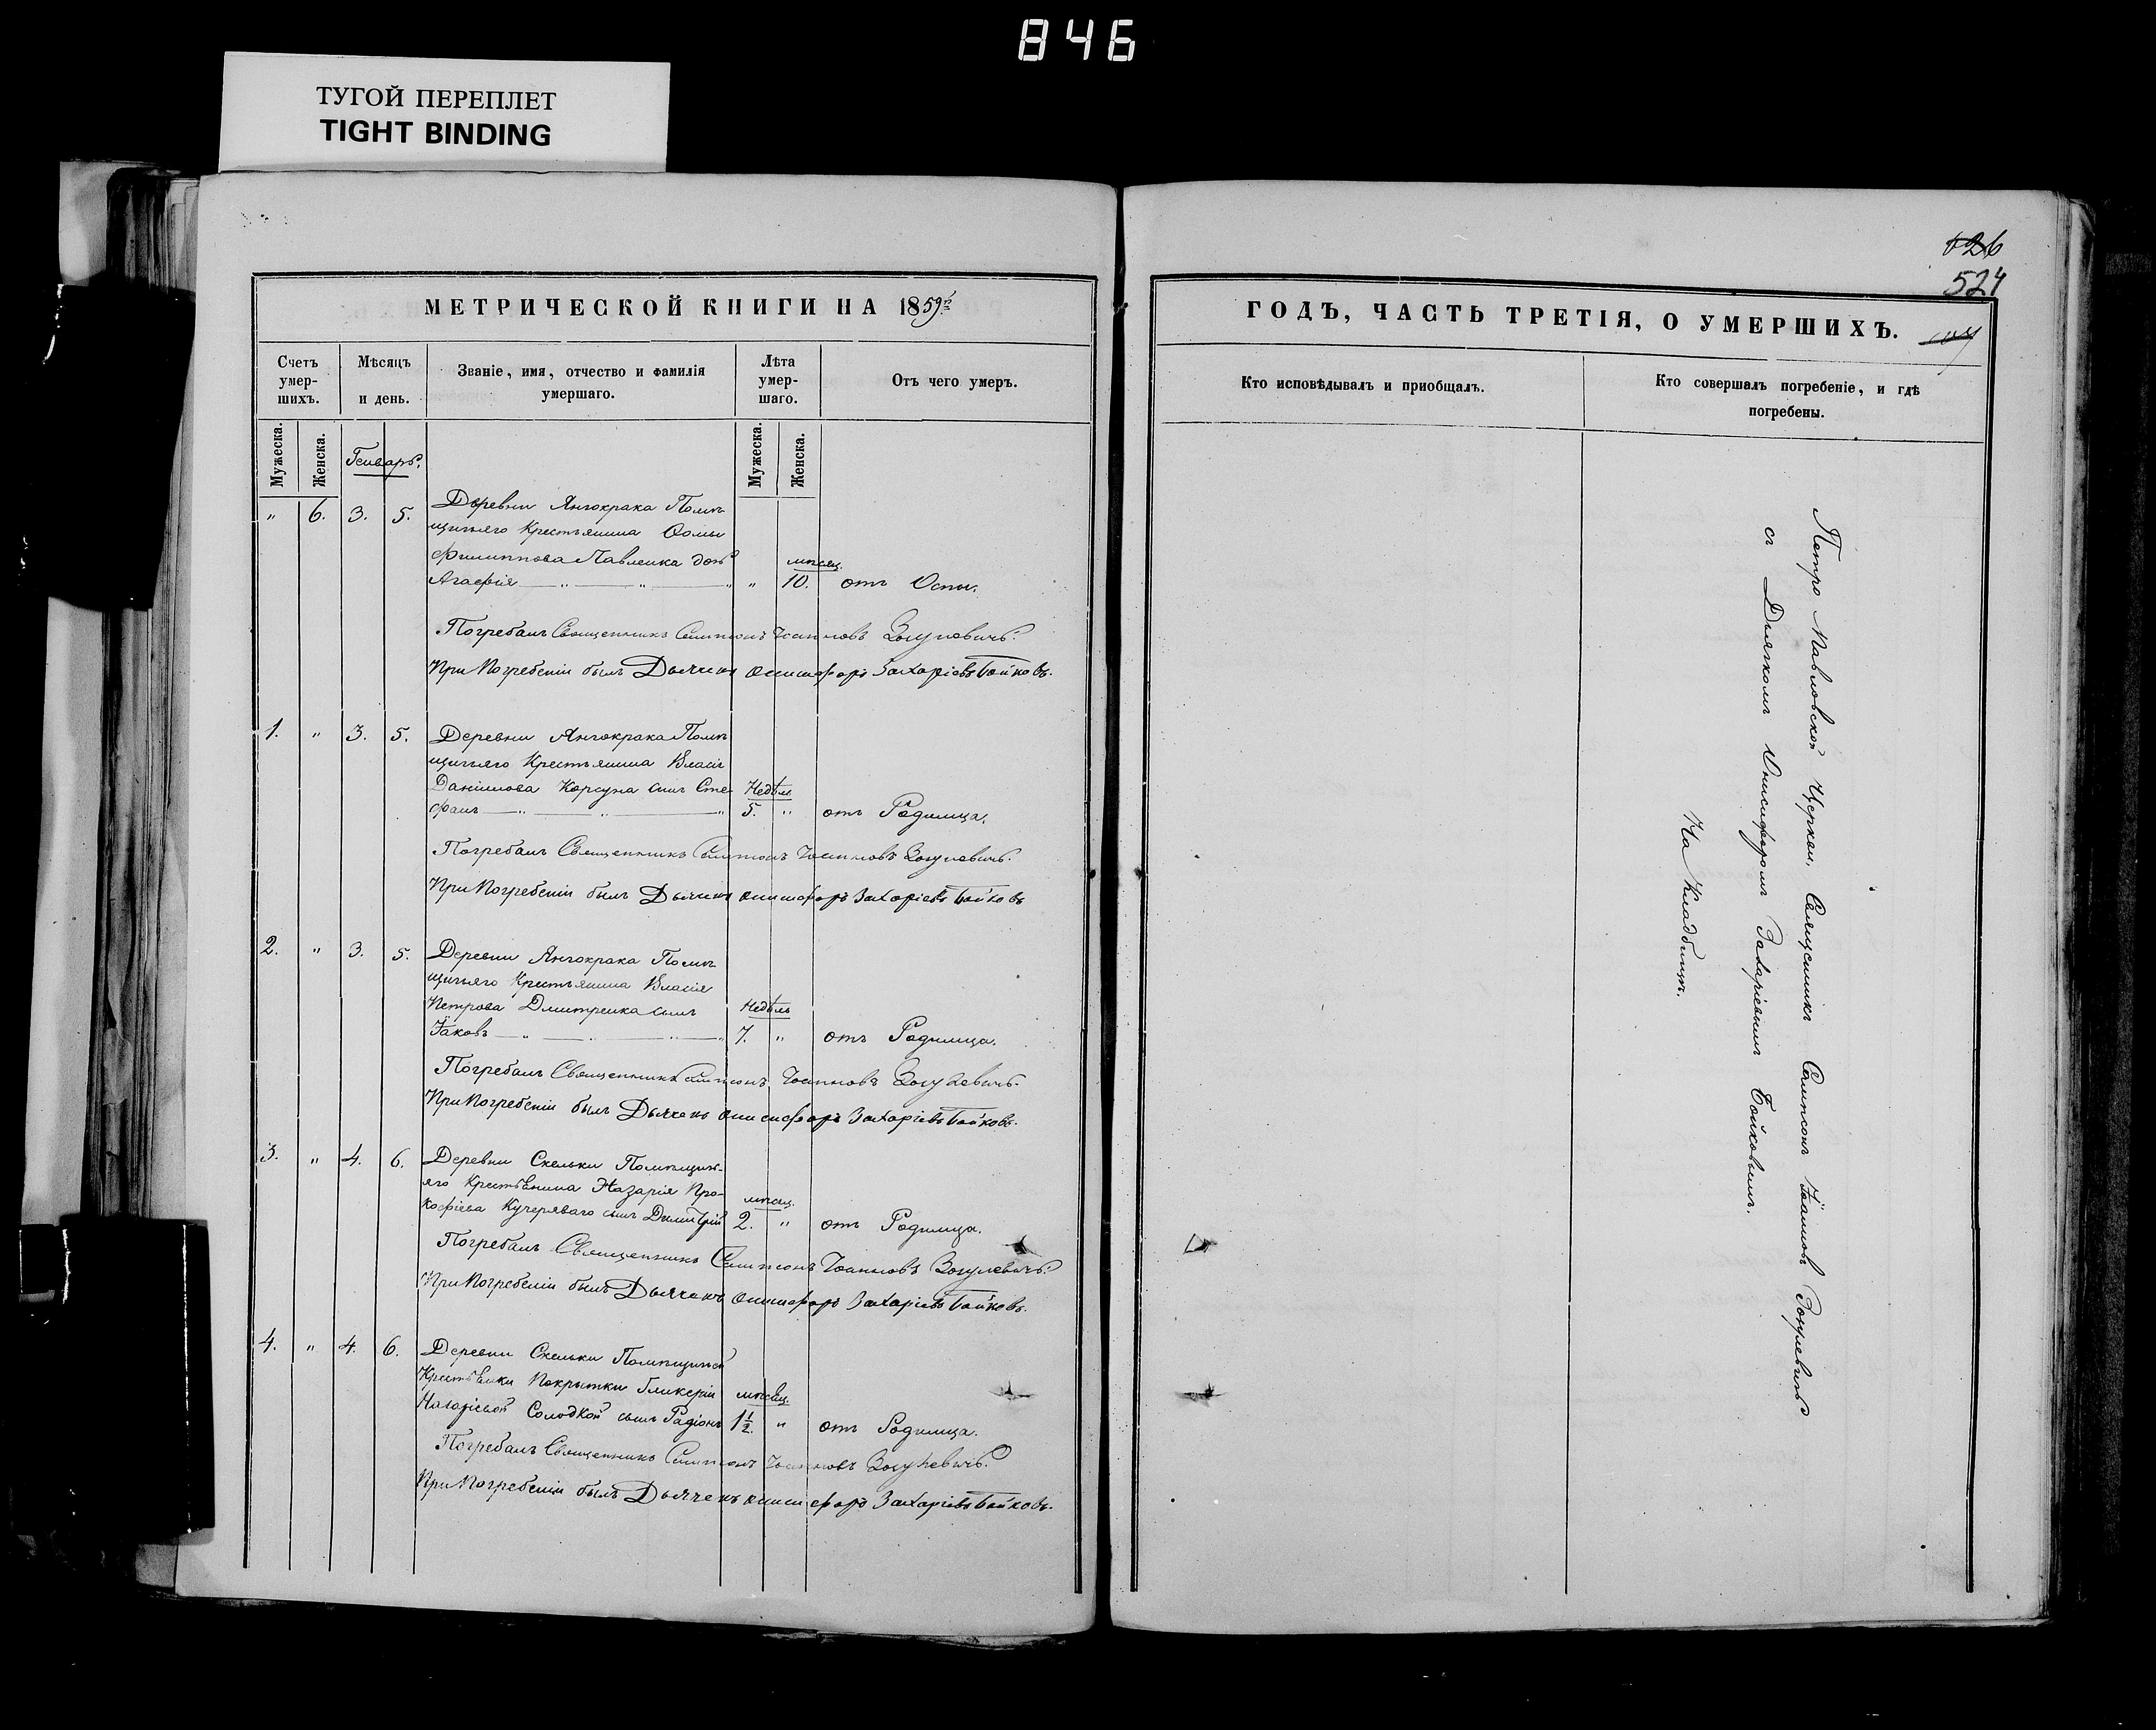 846
ТУГОЙ ПЕРЕПЛЕТ
TIGHT BINDING
МЕТРИЧЕСКОЙ КНИГИ НА 1859го
Счетъ умер-шихъ.
Мѣсяцъ и день.
Званіе, имя, отчество и фамилія умершаго.
Лѣта умер-шаго.
Отъ чего умеръ.
Мужеска.
Женска.
Генварь.
Мужеска.
Женска.
" 6. 3. 5. Деревни Янчокрака Помѣ
щичьяго Крестьянина Ѳомы
Филиппова Павленка дочь мѣсяц.
Агафія " " " " 10. отъ Оспы.
Погребалъ Священникъ Сампсонъ Іоанновъ
При Погребеніи былъ Дьячекъ Онисифоръ Захаріевъ Бойковъ.
1. " 3. 5. Деревни Янчокрака Помѣ
щичьяго Крестьянина Власія
Даніилова Корсуна сынъ Сте Недѣль
фанъ " " " 5. " отъ Родимца.
Погребалъ Священникъ Сампсонъ Іоанновъ
При Погребеніи былъ Дьячекъ Онисифоръ Захаріевъ Бойковъ
2. " 3. 5. Деревни Янчокрака Помѣ
щичьяго Крестьянина Власія
Петрова Дмитренка сынъ Недѣль
Іаковъ " " " " 7. " отъ Родимца.
Погребалъ Священникъ Сампсонъ Іоанновъ
При Погребеніи былъ Дьячекъ Онисифоръ Захаріевъ Бойковъ.
3. " 4. 6. Деревни Скельки Помѣщичь-
яго Крестьянина Назарія Про- мѣсяц.
кофіева Кучеряваго сынъ Димитрій 2. " отъ Родимца.
Погребалъ Священникъ Сампсонъ Іоанновъ
При Погребеніи былъ Дьячекъ Онисифоръ Захаріевъ Бойковъ.
4. " 4. 6. Деревни Скельки Помѣщичьей
Крестьянки Покрытки Гликеріи мѣсяц.
Назаріевой Солодкой сынъ Радіонъ 1½. " отъ Родимца.
Погребалъ Священникъ Сампсонъ Іоанновъ
При Погребеніи былъ Дьячекъ Онисифоръ Захаріевъ Бойковъ.
626
524
ГОДЪ, ЧАСТЬ ТРЕТІЯ, О УМЕРШИХЪ.
Кто исповѣдывалъ и пріобщалъ.
Кто совершалъ погребеніе, и гдѣ погребены.
Петро Павловской Церкви, Священникъ Сампсонъ Іоанновъ
съ Дьячкомъ Онисифоромъ Захаріевымъ Бойковымъ.
На Кладбищѣ.